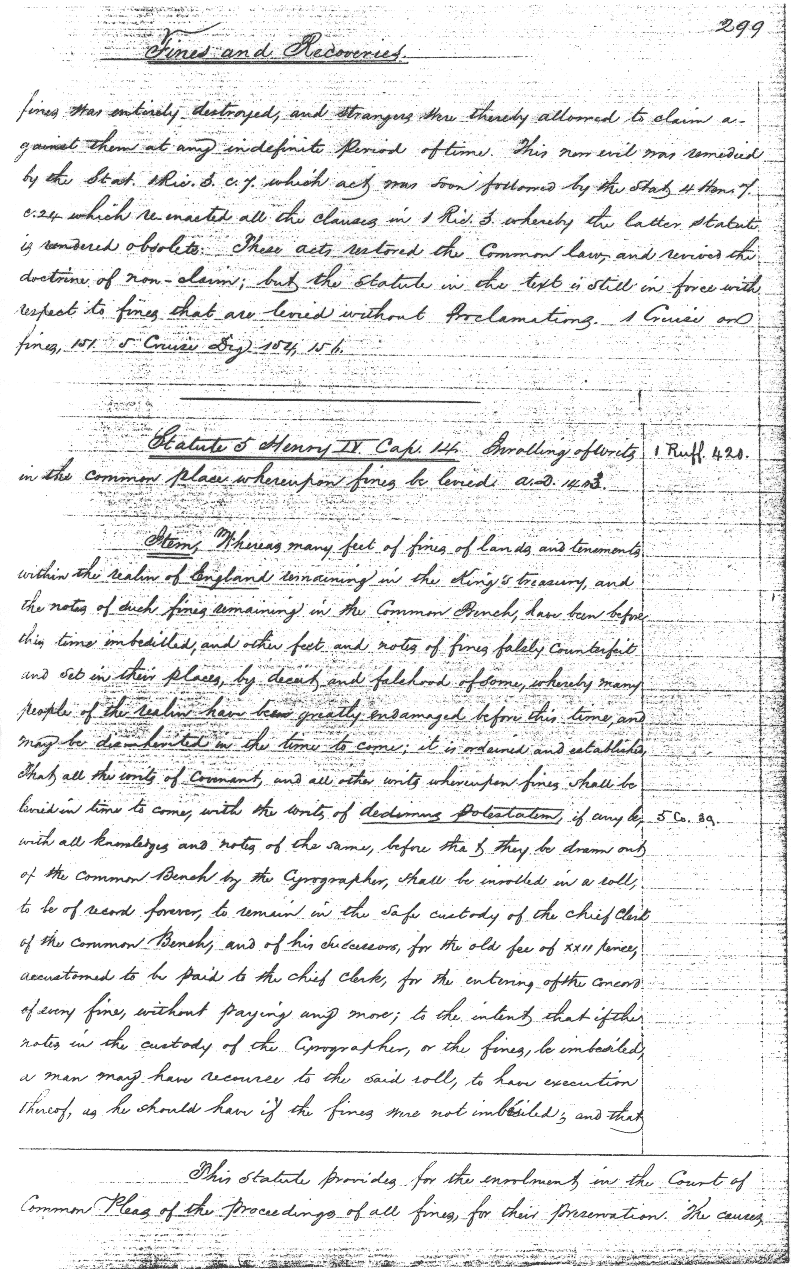 299
Fines and Recoveries.
fines was entirely destroyed, and strangers were thereby allowed to claim a-
gainst them at any indefinite period of time. This new evil was remedied
by the Stat. 1 Ric. 3. c. 7. which act was soon followed by the Stat. 4 Hen. 7.
c. 24 which re-enacted all the clauses in 1 Ric. 3. whereby the latter statute
is rendered obsolete. These acts restored the Common law, and revived the
doctrine of non-claim; but the statute in the text is still in force with
respect to fines that are levied without Proclamations. 1 Cruise on
fines, 151. 5 Cruise Dig 154, 156.
Statute 5 Henry IV Cap. 14. Enrolling of writs 1 Ruff. 420.
in the common place whereupon fines be levied. A.D. 1403.
Item, Whereas many feet of fines of lands and tenements
within the realm of England remaining in the King's treasury, and
the notes of such fines remaining in the Common Bench, have been before
this time imbesilled, and other feet and notes of fines falsly counterfeit
and set in their places, by deceit and falshood of some, whereby many
people of the realm have been greatly endamaged before this time, and
may be disinherited in the time to come; it is ordained and established,
That all the writs of Covenant, and all other writs whereupon fines shall be
levied in time to come, with the writs of dedimus potestatem, if any be, 5 Co. 39.
with all knowledges and notes of the same, before that they be drawn out
of the common Bench by the Cyrographer, shall be inrolled in a roll,
to be of record forever, to remain in the safe custody of the chief Clerk
of the common Bench, and of his successors, for the old fee of XXII pence,
accustomed to be paid to the chief clerk, for the entering of the concord
of every fine, without paying any more; to the intent that if the
notes in the custody of the Cyrographer, or the fines, be imbesiled,
a man may have recourse to the said roll, to have execution
thereof, as he should have if the fines were not imbesiled; and that
This statute provides for the enrolment in the Court of
Common Pleas of the proceedings of all fines, for their preservation. The causes